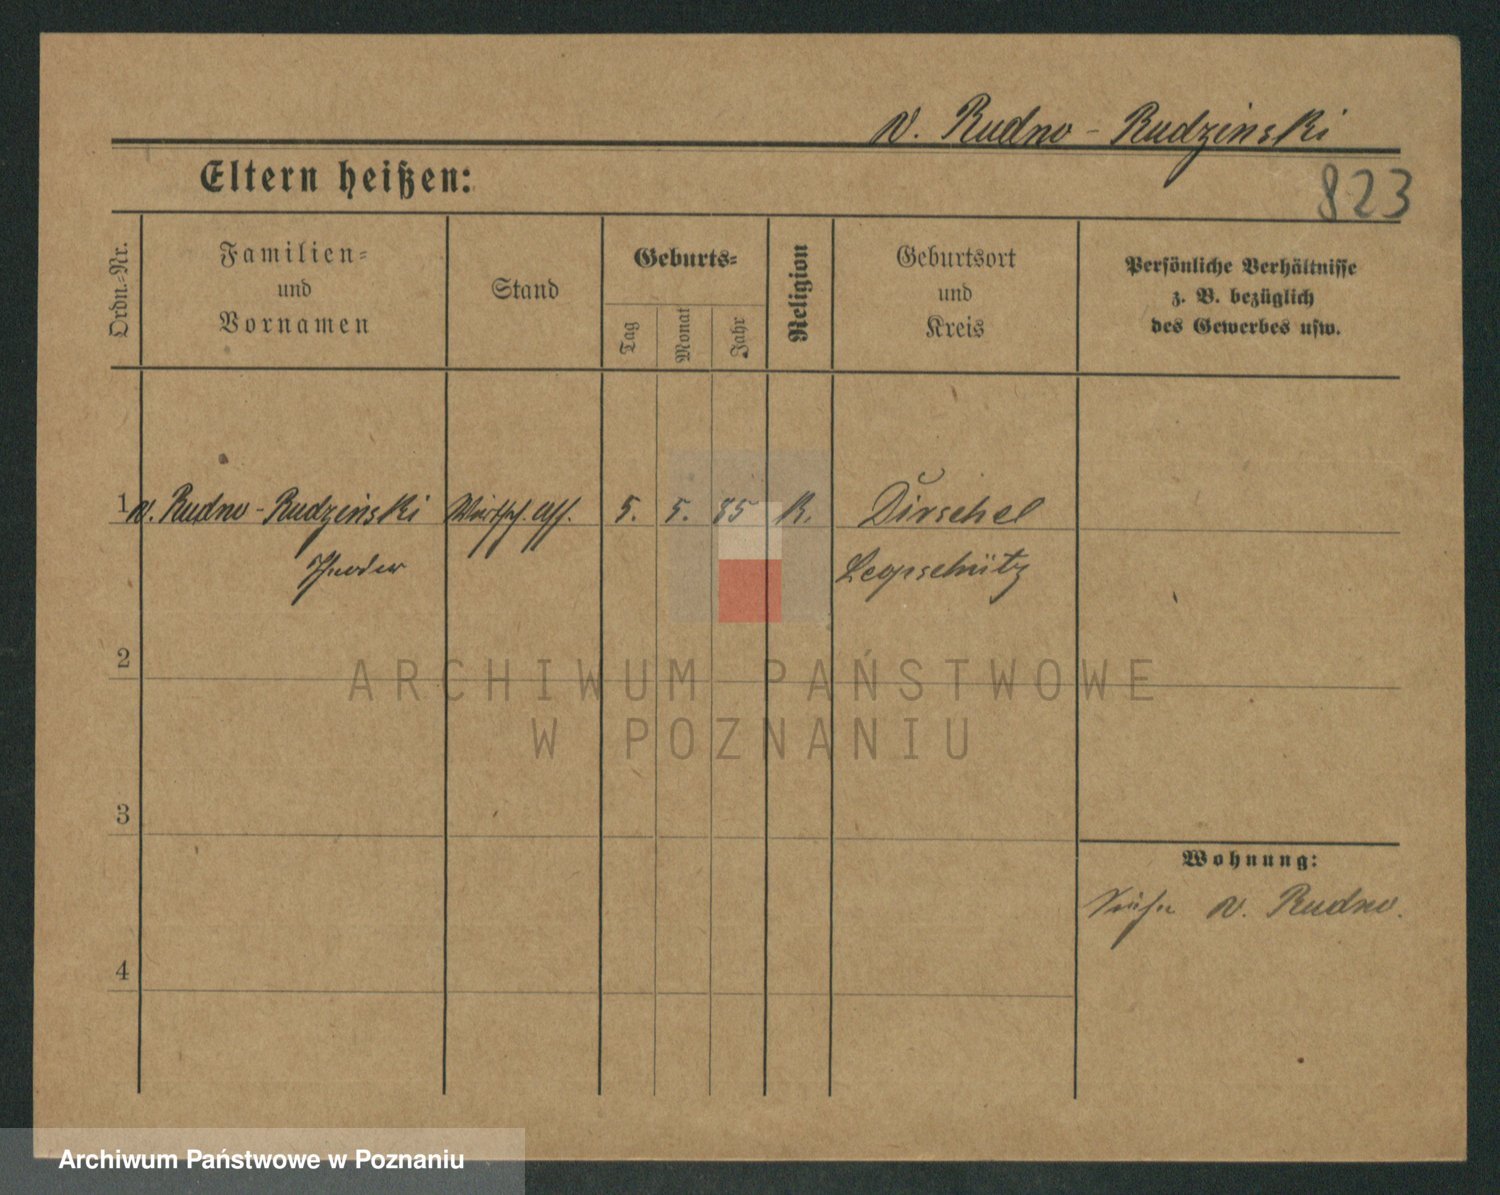 v. Rudno - Rudzinski
Eltern heißen:
823
Ordn.-Nr.
Familien-
und
Vornamen
Stand
Geburts-
Tag
Monat
Jahr
Religion
Geburtsort
und
Kreis
Persönliche Verhältnisse
z. B. bezüglich
des Gewerbes usw.
1 v. Rudno - Rudzinski Wirtsch. Ass. 5. 5. 85 K. Dirschel
Theodor Leopschütz
2
ARCHIWUM PAŃSTWOWE
W POZNANIU
3
Wohnung:
Siehe v. Rudno.
4
Archiwum Państwowe w Poznaniu